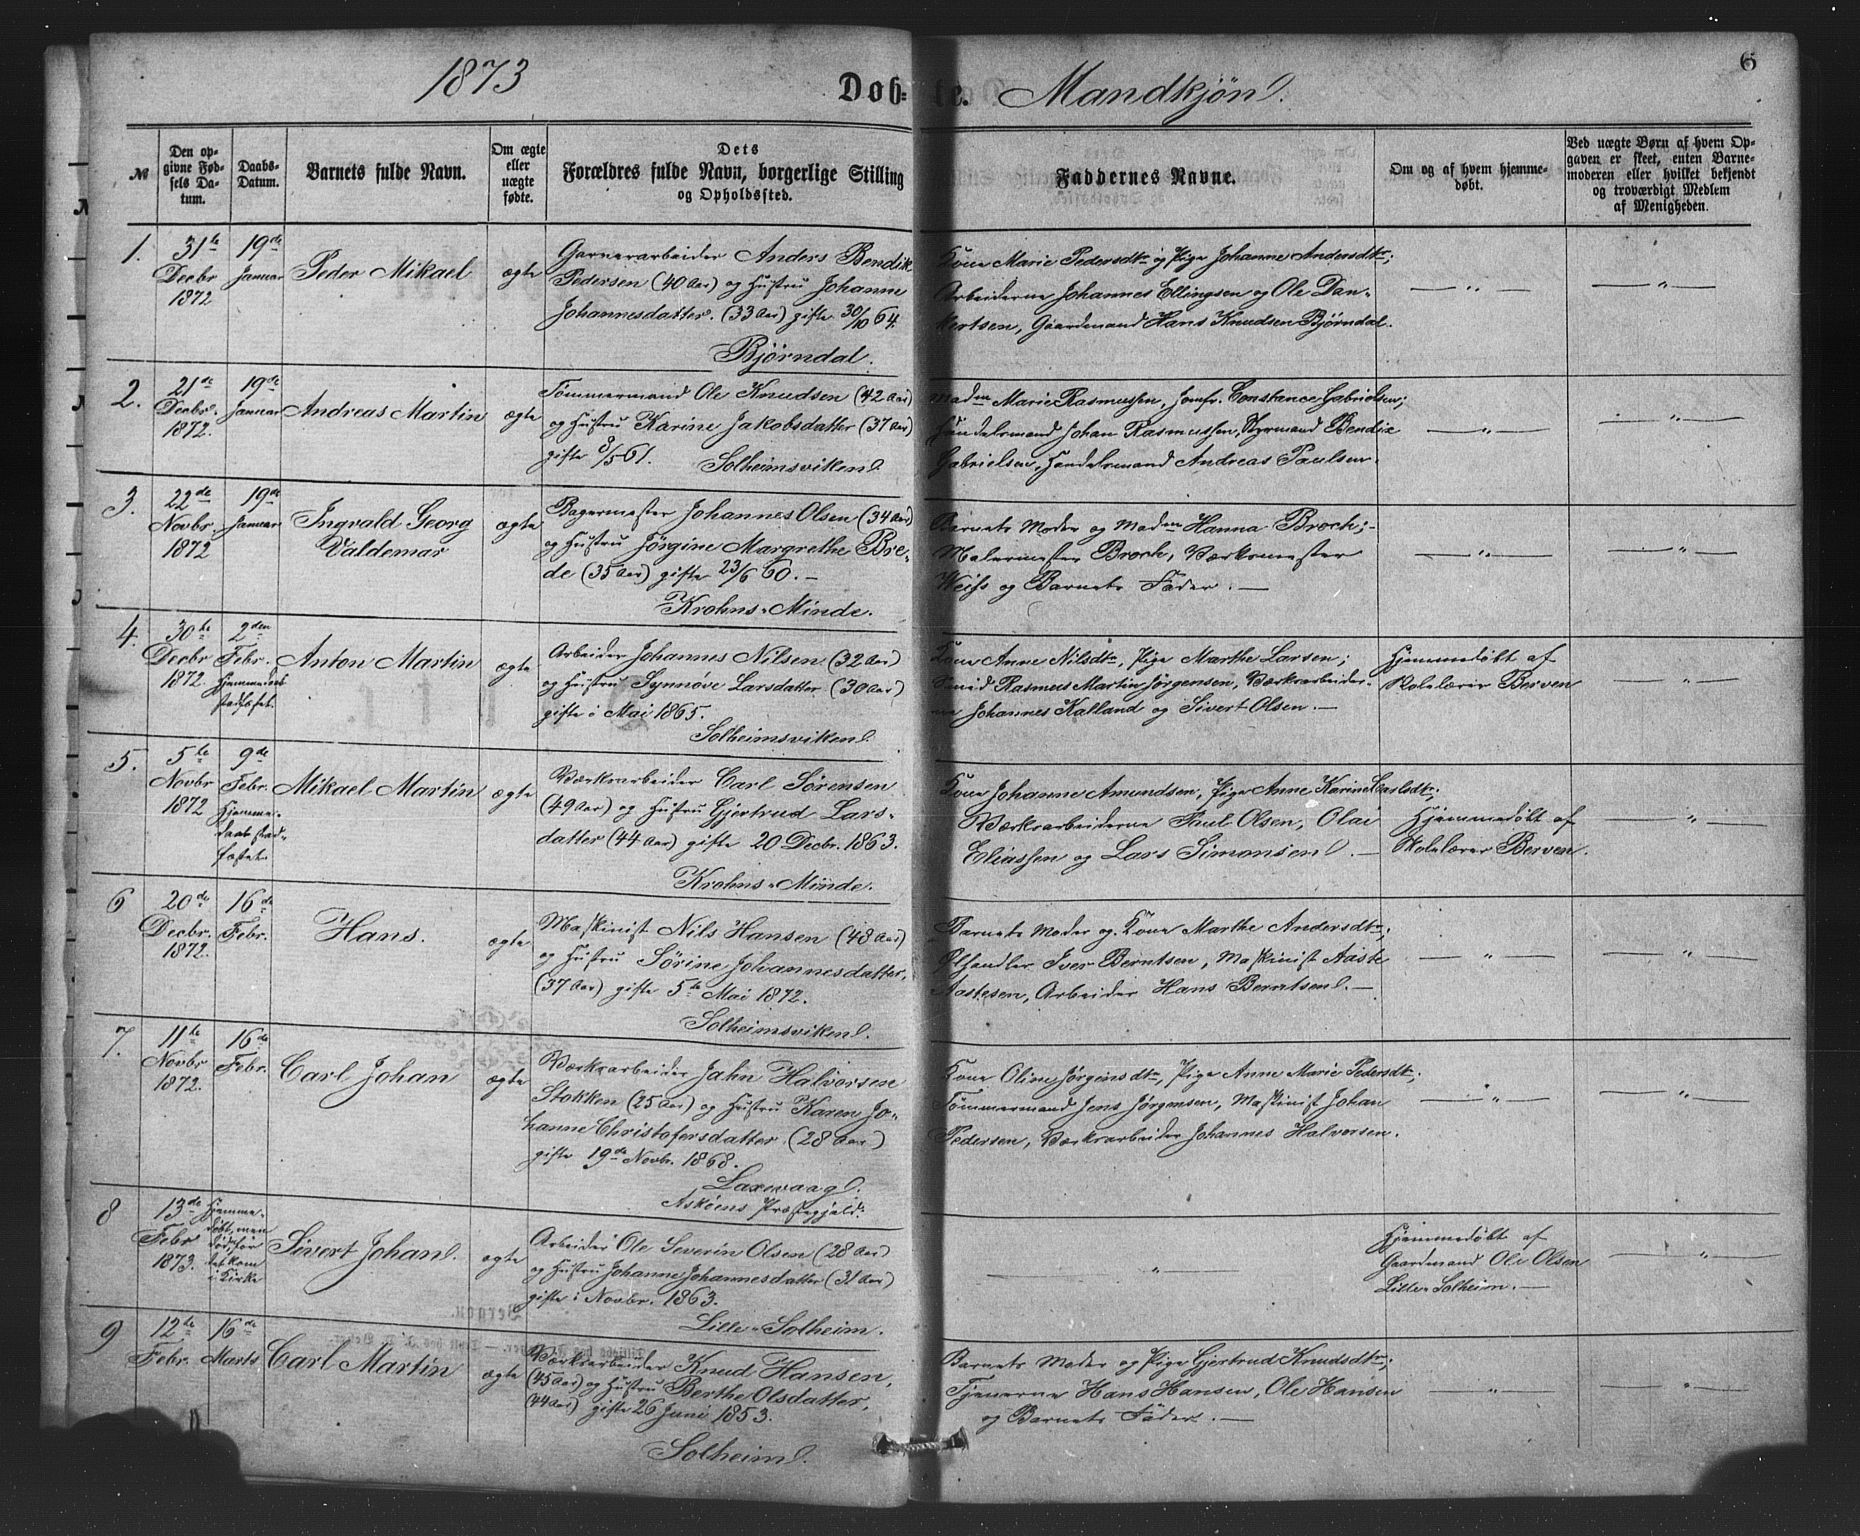 1873
Døb- te. Mandkjøn.
6
№
Den opgivne Fødsels Datum.
Daabs-Datum.
Barnets fulde Navn.
Om ægte eller uægte fødte.
Dets Forældres fulde Navn, borgerlige Stilling og Opholdssted.
Faddernes Navne.
Om og af hvem hjemmedøbt.
Ved uægte Børn af hvem Opgaven er skeet, enten Barnemoderen eller hvilket bekjendt og troværdigt Medlem af Menigheden.
1.
31te Decbr 1872
19de Januar
Peder Mikael
ægte
Garverarbeider Anders Bendik
Pedersen (40 Aar) og Hustru Johanne
Johannesdatter. (33 Aar) gifte 30/10 64.
Bjørndal.
Kone Marie Pedersdtr og Pige Johanne Andersdtr;
Arbeiderne Johannes Ellingsen og Ole Dan-
kertsen, Gaardmand Hans Knudsen Bjørndal.
— " —
— " —
2.
21de Decbr. 1872.
19de Januar
Andreas Martin
ægte
Tømmermand Ole Knudsen (42 Aar)
og Hustru Karine Jakobsdatter (37 Aar)
gifte 8/5 61. Solheimsviken
Madm Marie Rasmussen, Jomfr. Constance Gabrielsen;
Handelsmand Johan Rasmussen, Styrmand Bendix
Gabrielsen, Handelsmand Andreas Paulsen.
— " —
— " —
3.
22de Novbr 1872
19de Januar
Ingvald Georg
Valdemar
ægte
Bagermester Johannes Olsen (34 Aar)
og Hustru Jørgine Margrethe Bre-
de (35 Aar) gifte 23/6 60. —
Krohns-Minde.
Barnets Moder og Madm Hanna Broch; —
Malermester Broch, Værksmester
Weiss og Barnets Fader. —
— " —
— " —
4.
30te Decbr 1872.
2den Febr. Hjemmedaab stadfæstet.
Anton Martin
ægte
Arbeider Johannes Nilsen (32 Aar)
og Hustru Synnøve Larsdatter (30 Aar)
gifte i Mai 1865.
Solheimsviken
Kone Anne Nilsdtr, Pige Marthe Larsen;
Smid Rasmus Martin Jørgensen, Værksarbeider-
ne Johannes Kalland og Sivert Olsen. —
Hjemmedøbt af
Skolelærer Berven
— " —
5.
5te Novbr 1872
9de Febr. Hjemme-
daab stad-
fæstet.
Mikael Martin
ægte
Værksarbeider Carl Sørensen
(49 Aar) og Hustru Gjertrud Lars-
datter (44 Aar) gifte 20 Decbr. 1863.
Krohns-Minde.
Kone Johanne Amundsen, Pige Anne Karine Carlsdtr;
Værksarbeiderne Paul Olsen, Olai
Eliassen og Lars Simonsen. —
Hjemmedøbt af
Skolelærer Berven.
— " —
6
20de Decbr. 1872.
16de Febr.
Hans.
ægte
Maskinist Nils Hansen (48 Aar)
og Hustru Sørine Johannesdatter,
(37 Aar) gifte 5te Mai 1872.
Solheimsviken
Barnets Moder og Kone Marthe Andersdtr;
Ølhandler Iver Berntsen, Maskinist Aaste
Aastesen, Arbeider Hans Berntsen. —
— " —
— " —
7.
11te Novbr 1872.
16de Febr.
Carl Johan
ægte
Værksarbeider Jahn Halvorsen
Stokken (25 Aar) og Hustru Karen Jo-
hanne Christofersdatter (28 Aar)
gifte 19de Novbr. 1868.
Laxevaag
Askøens Præstegjeld.
Kone Oline Jørgensdtr, Pige Anne Marie Pedersdtr;
Tømmermand Jens Jørgensen, Maskinist Johan
Pedersen, Værksarbeider Johannes Halvorsen.
— " —
— " —
8
13de Febr 1873.
Hjemme-
døbt, men
døde før
det kom
i Kirke
Sivert Johan
ægte
Arbeider Ole Severin Olsen (28 Aar)
og Hustru Johanne Johannesdatter (31 Aar)
gifte i Novbr. 1863.
Lille-Solheim.
— " —
Hjemmedøbt af
Gaardmand Ole Olsen
Lille-Solheim. —
— " —
9
12te Febr.
16de Marts
Carl Martin
ægte
Værksarbeider Knud Hansen,
(45 Aar) og Hustru Berthe Olsdatter,
(44 Aar) gifte 26 Juni 1853.
Solheim
Barnets Moder og Pige Gjertrud Knudsdtr;
Tjenerne Hans Hansen, Ole Hansen
og Barnets Fader. —
"
— " —